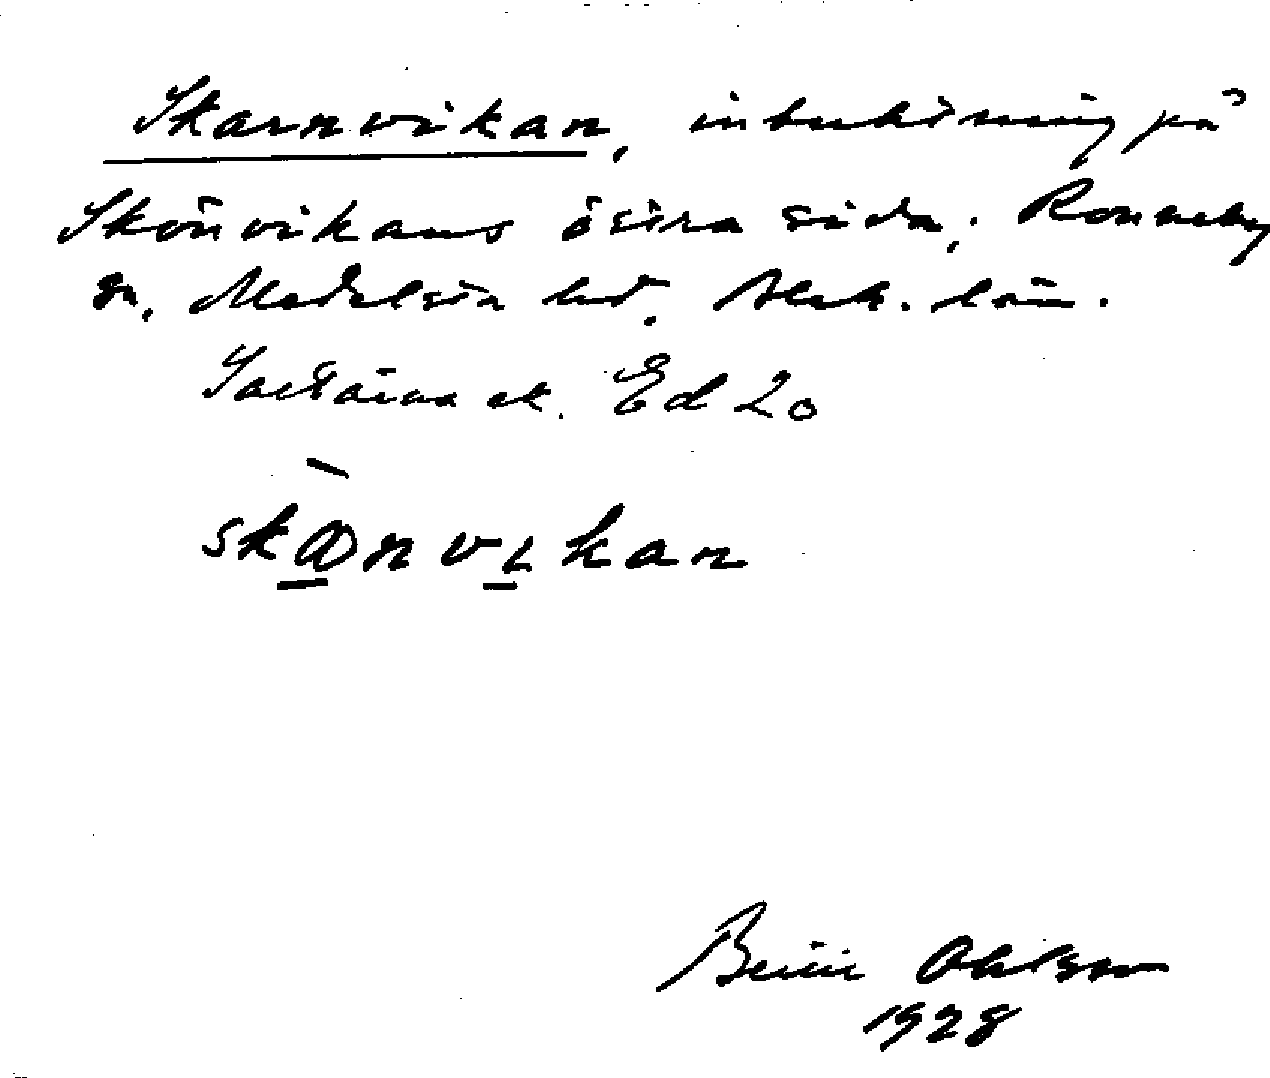 Skarnvikan, inbuktning på
Skönvikans östra sida, Ronneby
sn, Medelsta hd, Blek. län.
ek. Ed 20
skɑnvikan
Bertil Ohlson
1928